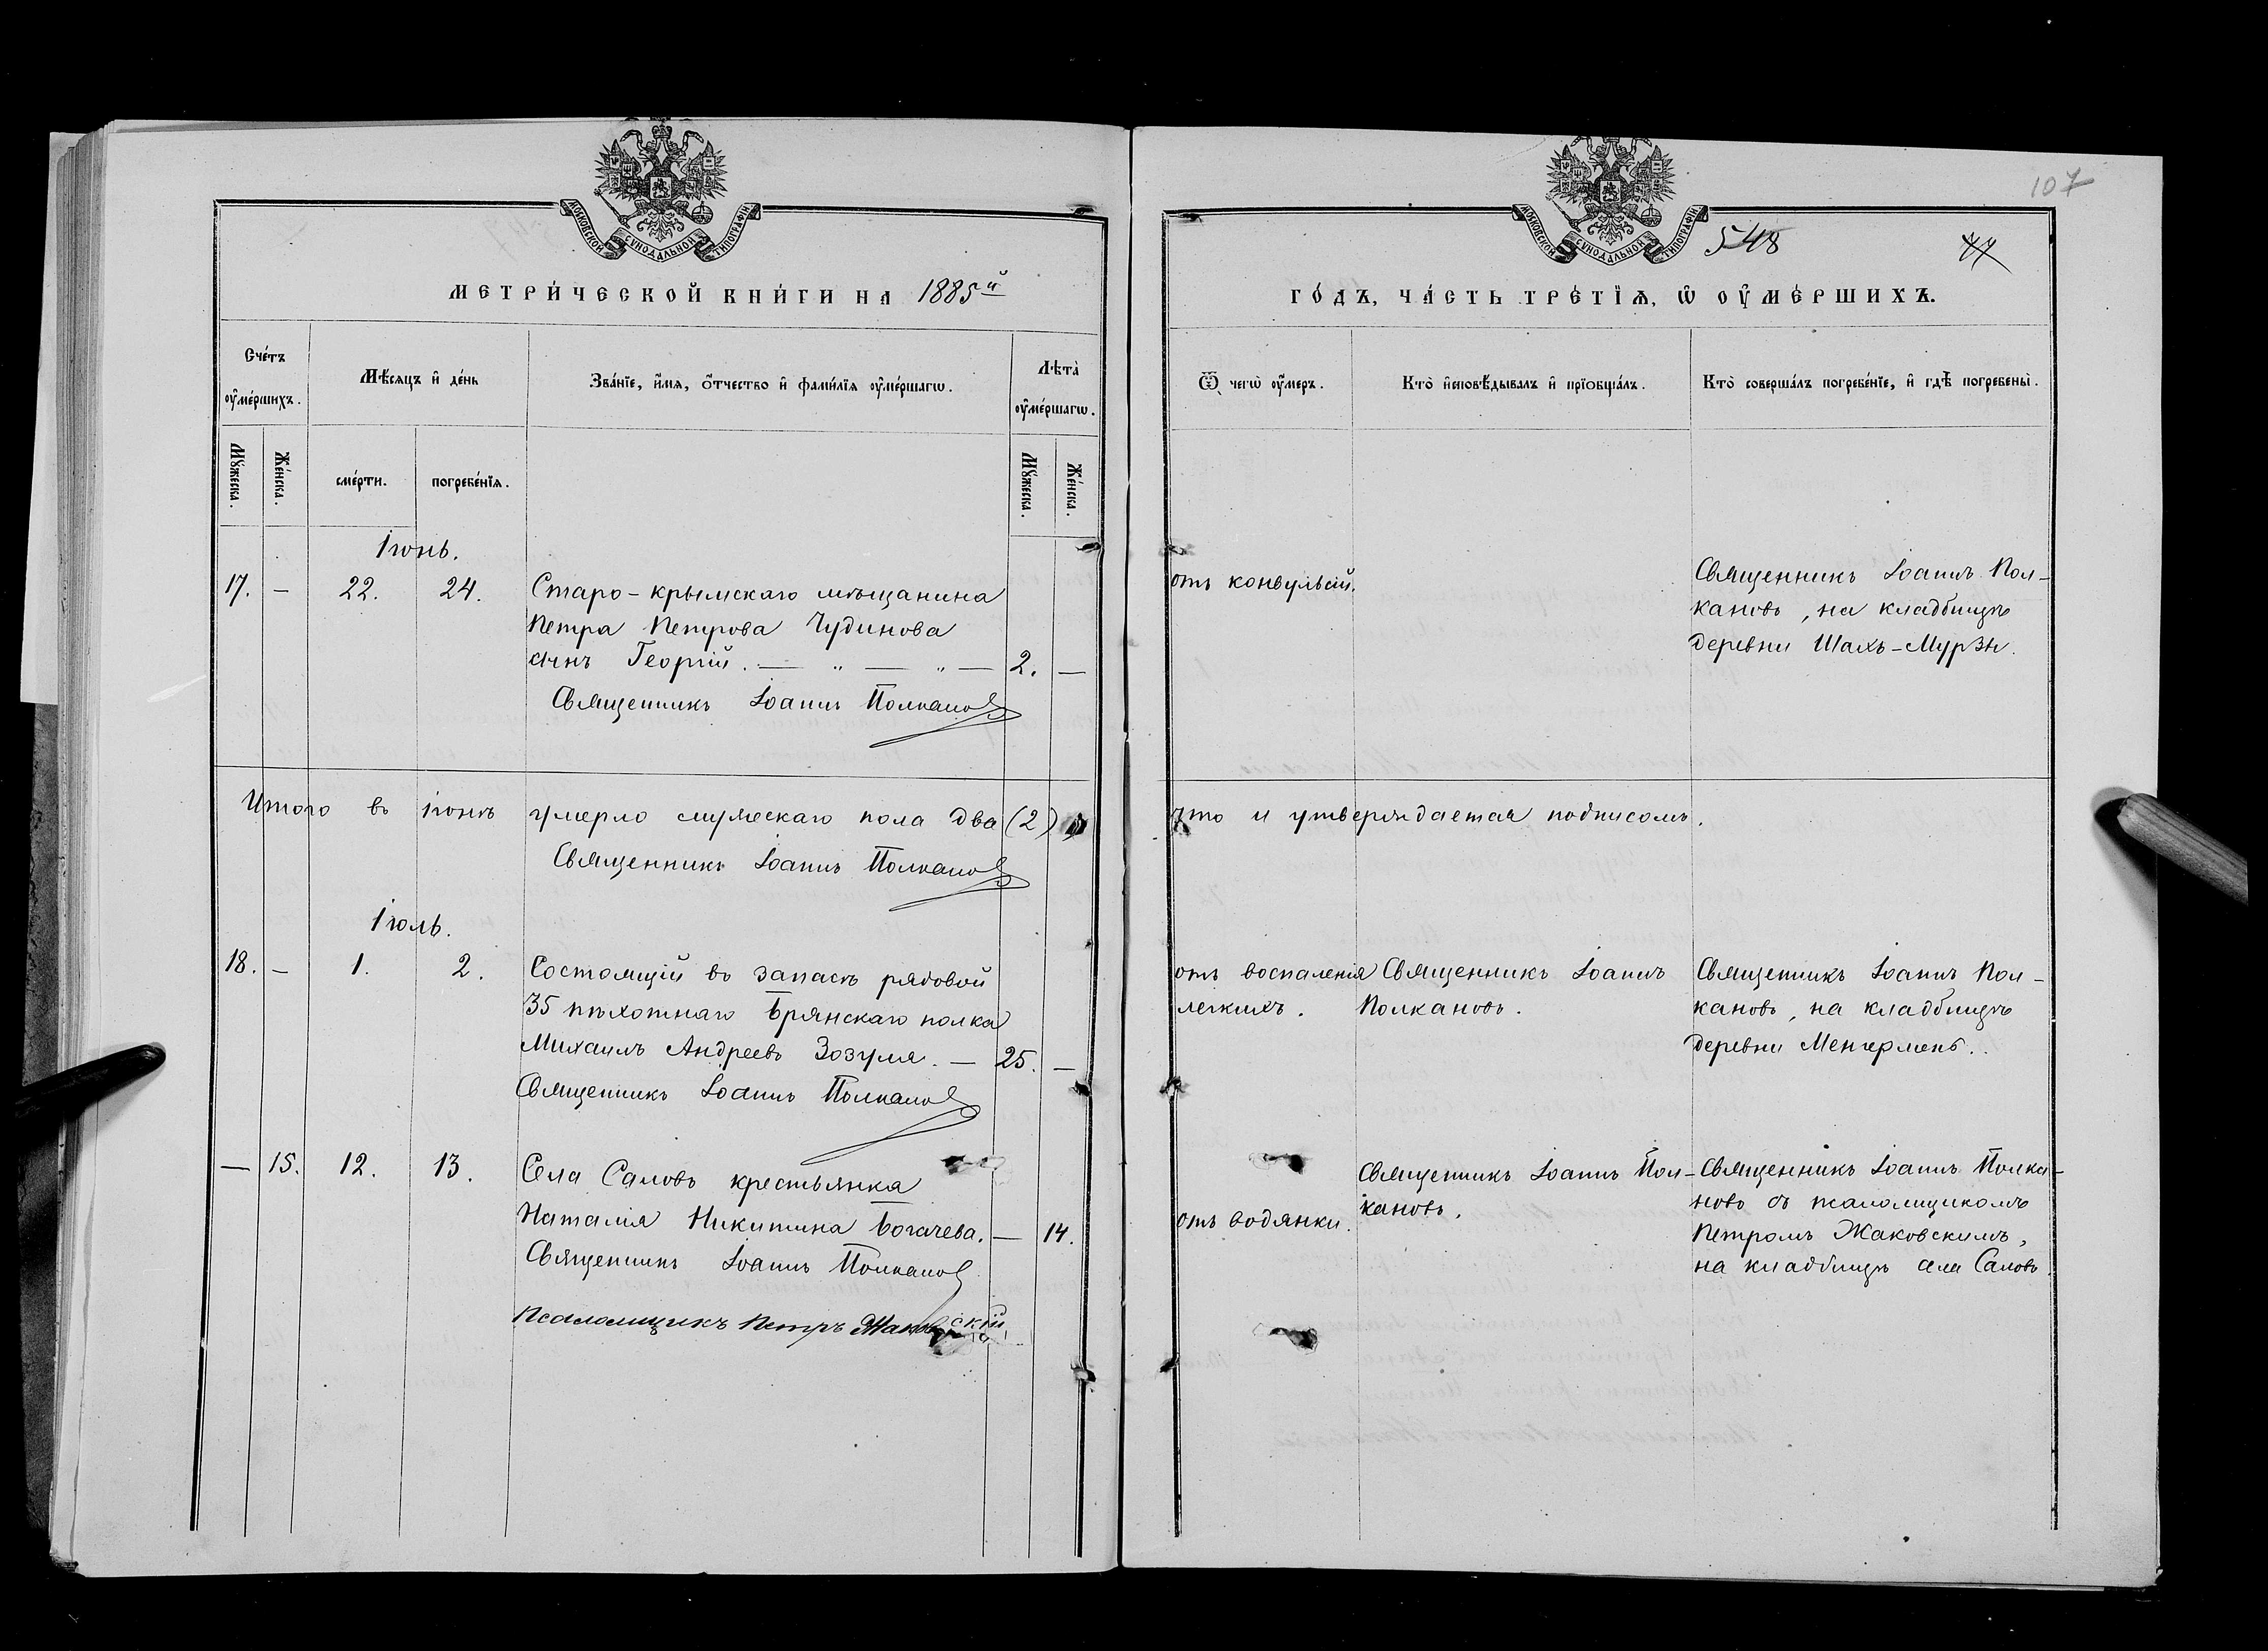 МОСКОВСКОЙ СѴНОДАЛЬНОЙ ТИПОГРАФІИ.
МЕТРИ́ЧЕСКОЙ КНИ́ГИ НА 1885й
Сче́тъ ᲂу҆ме́ршихъ.
Мѣ́сяцъ и҆ де́нь
Зва́нїе, и҆́мя, ѻ҆́тчество и҆ фами́лїя ᲂу҆ме́ршагѡ.
Лѣта̀ ᲂу҆ме́ршагѡ.
Мꙋ́жеска.
Же́нска.
сме́рти.
погребе́нїя.
Мꙋ́жеска.
Же́нска.
Іюнь.
17. — 22. 24. Старо-крымскаго мѣщанина
Петра Петрова Чудинова
сынъ Георгій. — „ — „ — 2. —
Священникъ Іоаннъ Полканов
Итого въ іюнѣ умерло мужескаго пола два (2)
Священникъ Іоаннъ Полканов
Іюль.
18. — 1. 2. Состоящій въ запасѣ рядовой
35 пѣхотнаго Брянскаго полка
Михаилъ Андреевъ Зозуля. — 25. —
Священникъ Іоаннъ Полканов
— 15. 12. 13. Села Саловъ крестьянка
Наталія Никитина Богачева. — 14.
Священникъ Іоаннъ Полканов
Псаломщикъ Петръ Жаковскій
107
МОСКОВСКОЙ СѴНОДАЛЬНОЙ ТИПОГРАФІИ.
548
ГО́ДЪ, ЧА́СТЬ ТРЕ́ТЇѦ, Ѡ҆ ОУ҆МЕ́РШИХЪ.
Ѿ чегѡ̀ ᲂу҆́меръ.
Кто̀ и҆сповѣ́дывалъ и҆ прїобща́лъ.
Кто̀ соверша́лъ погребе́нїе, и҆ гдѣ̀ погребены̀.
отъ конвульсій.
Священникъ Іоаннъ Пол-
кановъ, на кладбищѣ
деревни Шахъ-Мурзы.
что и утверждается подписомъ.
отъ воспаленія
легкихъ.
Священникъ Іоаннъ
Полкановъ.
Священникъ Іоаннъ Пол-
кановъ, на кладбищѣ
деревни Менгерменъ.
отъ водянки.
Священникъ Іоаннъ Пол-
кановъ.
Священникъ Іоаннъ Полка-
новъ съ псаломщикомъ
Петромъ Жаковскимъ,
на кладбищѣ села Саловъ.